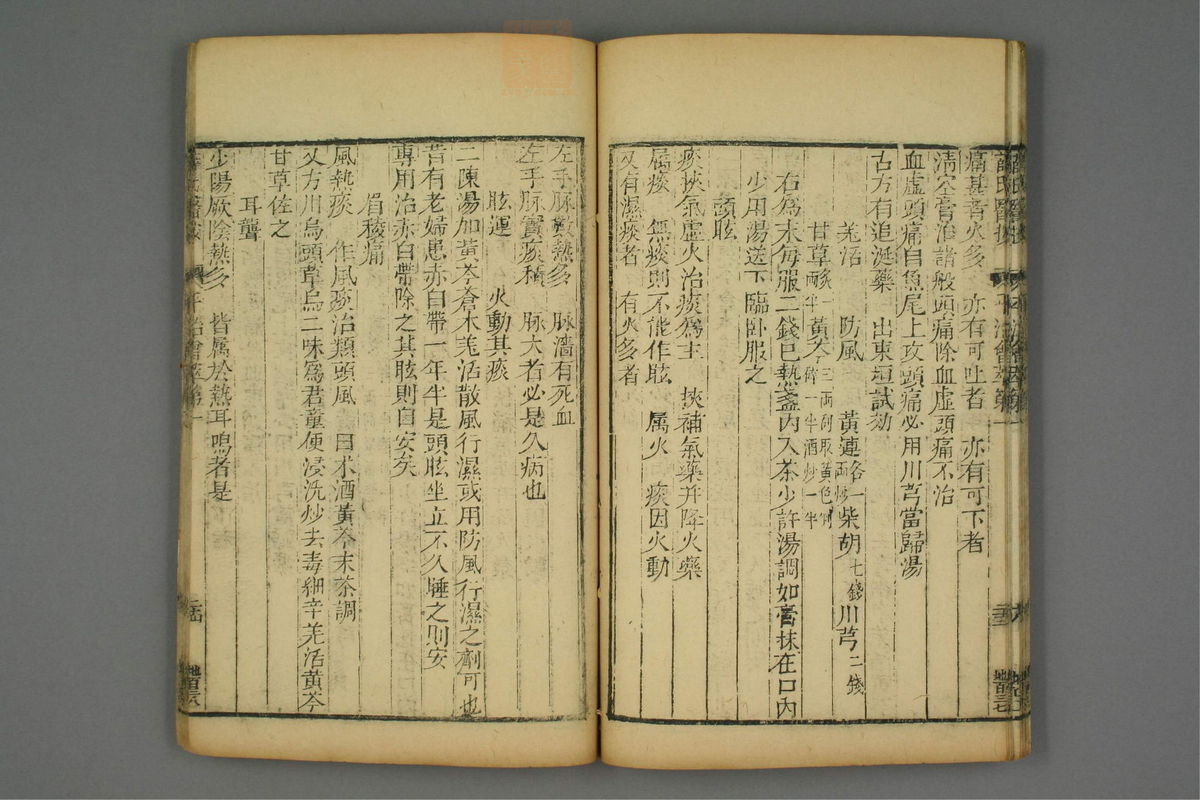 痛甚者火多　亦有可吐者　亦有可下者
淸空膏治諸般頭痛除血虛頭痛不治
血虛頭痛自魚尾上攻頭痛必用川芎當歸湯
古方有追涎藥　出東垣試効
羌活　防風　黃連各一兩炒柴胡七錢川芎二錢
甘草炙一兩半黃芩三兩剉取黃色仍碎一半酒炒一半
右爲末每服二錢已熱盞內入茶少許湯調如膏抹在口內
少用湯送下臨卧服之
頭眩
痰挾氣虛火治痰爲主　挾補氣藥并降火藥
屬痰　無痰則不能作眩　属火　痰因火動
又有濕痰者　有火多者
左手脉數熱多　脉濇有死血
左手脉實痰積　脉大者必是久病也
眩運　火動其痰
二陳湯加黃芩蒼木羌活散風行濕或用防風行濕之劑可也
昔有老婦患赤白帶一年半是頭眩坐立不久睡之則安
專用治赤白帶除之其眩則自安矣
眉稜痛
風熱痰　作風痰治類頭風　白术酒黃芩末茶調
又方川烏頭草烏二味爲君童便浸洗炒去毒細辛羌活黃芩
甘草佐之
耳聾
少陽厥陰熱多　皆属於熱耳鳴者是